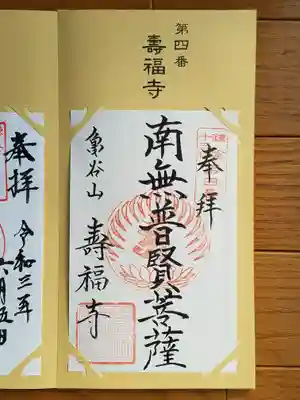 第四番
壽福寺
奉拜
南無普賢菩薩
亀谷山 壽福寺
奉拜
令和三年
六月五日